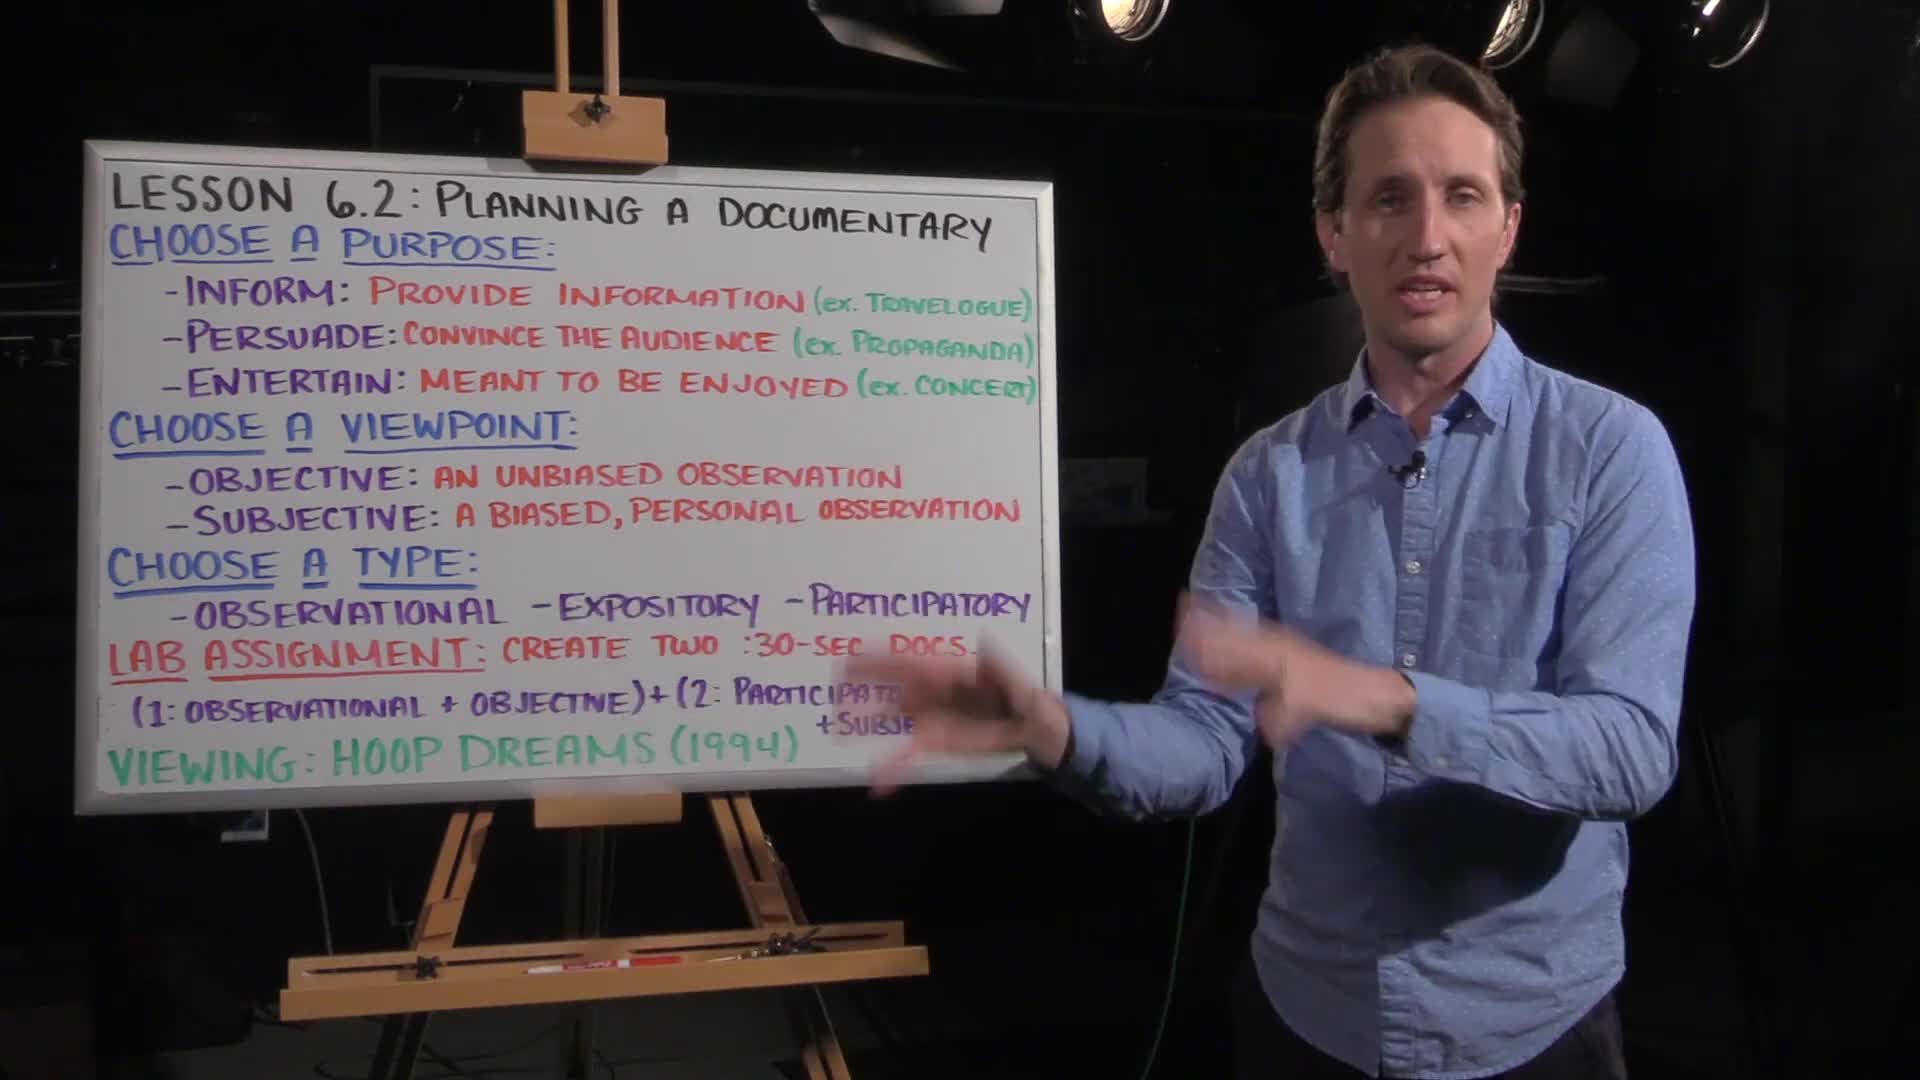 LESSON 6.2: PLANNING A DOCUMENTARY
CHOOSE A PURPOSE:
-INFORM: PROVIDE INFORMATION (ex. TRAVELOGUE)
-PERSUADE: CONVINCE THE AUDIENCE (ex. PROPAGANDA)
-ENTERTAIN: MEANT TO BE ENJOYED (ex. CONCERT)
CHOOSE A VIEWPOINT:
-OBJECTIVE: AN UNBIASED OBSERVATION
-SUBJECTIVE: A BIASED, PERSONAL OBSERVATION
CHOOSE A TYPE:
-OBSERVATIONAL -EXPOSITORY -PARTICIPATORY
LAB ASSIGNMENT: CREATE TWO :30-SEC DOCS.
(1: OBSERVATIONAL + OBJECTIVE) + (2:
VIEWING: HOOP DREAMS (1994)